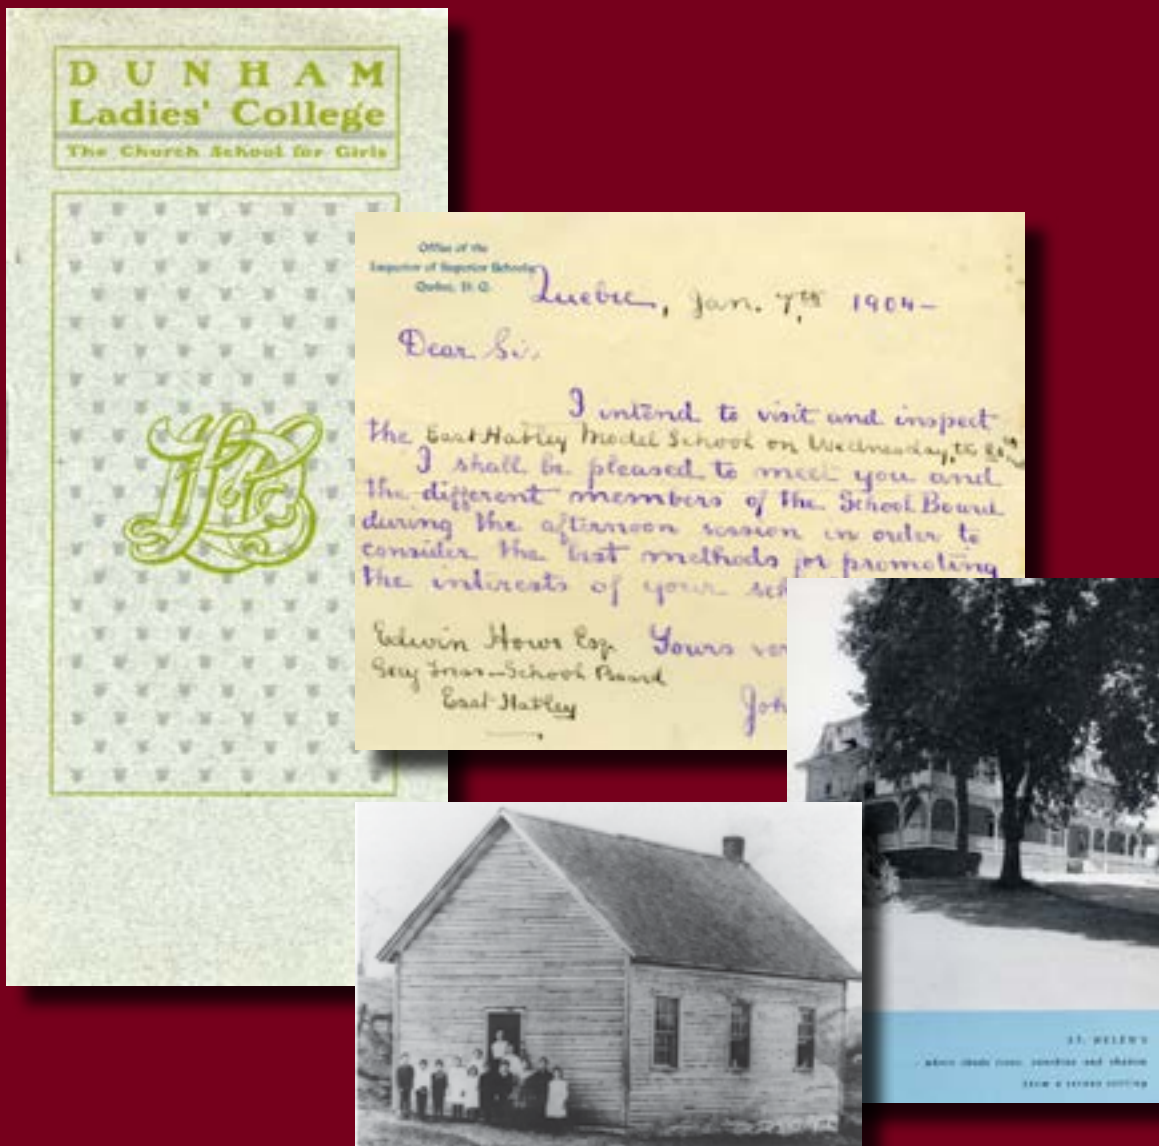 DUNHAM
Ladies' College
The Church School for Girls
Office of the
Inspector of Superior Schools
Quebec, P. Q.
Quebec, Jan. 7th 1904-
Dear Sir,
I intend to visit and inspect
the East Hatley Model School on Wednesday, the
I shall be pleased to meet you and
the different members of the School Board
during the afternoon session in order to
consider the best methods for promoting
the interests of your sch
Yours ver
Joh
Edwin Hows Esq
Secy Treas-School Board
East Hatley
ST. HELEN'S
where shade trees, sunshine and shadow
from a serene setting